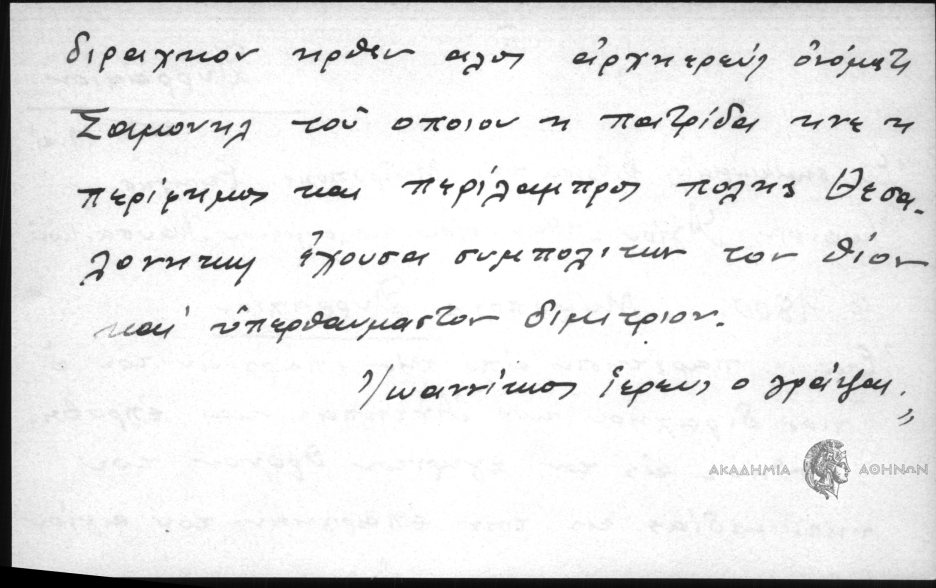 διραχηον ηρθεν αλος ἀρχηερεύς ὀνόματι
Σαμουηλ τοῦ οποιου η πατρίδα ηνε η
περίφημος και περίλαμπρος πολης Θεσα-
λονηκη ἔχουσα συμπολιτην τον θίον
καὶ ὑπερθαυμαστον διμιτριον.
Ἰωαννίκιος ἱερευς ο γράψας.
"
ΑΚΑΔΗΜΙΑ ΑΘΗΝΩΝ